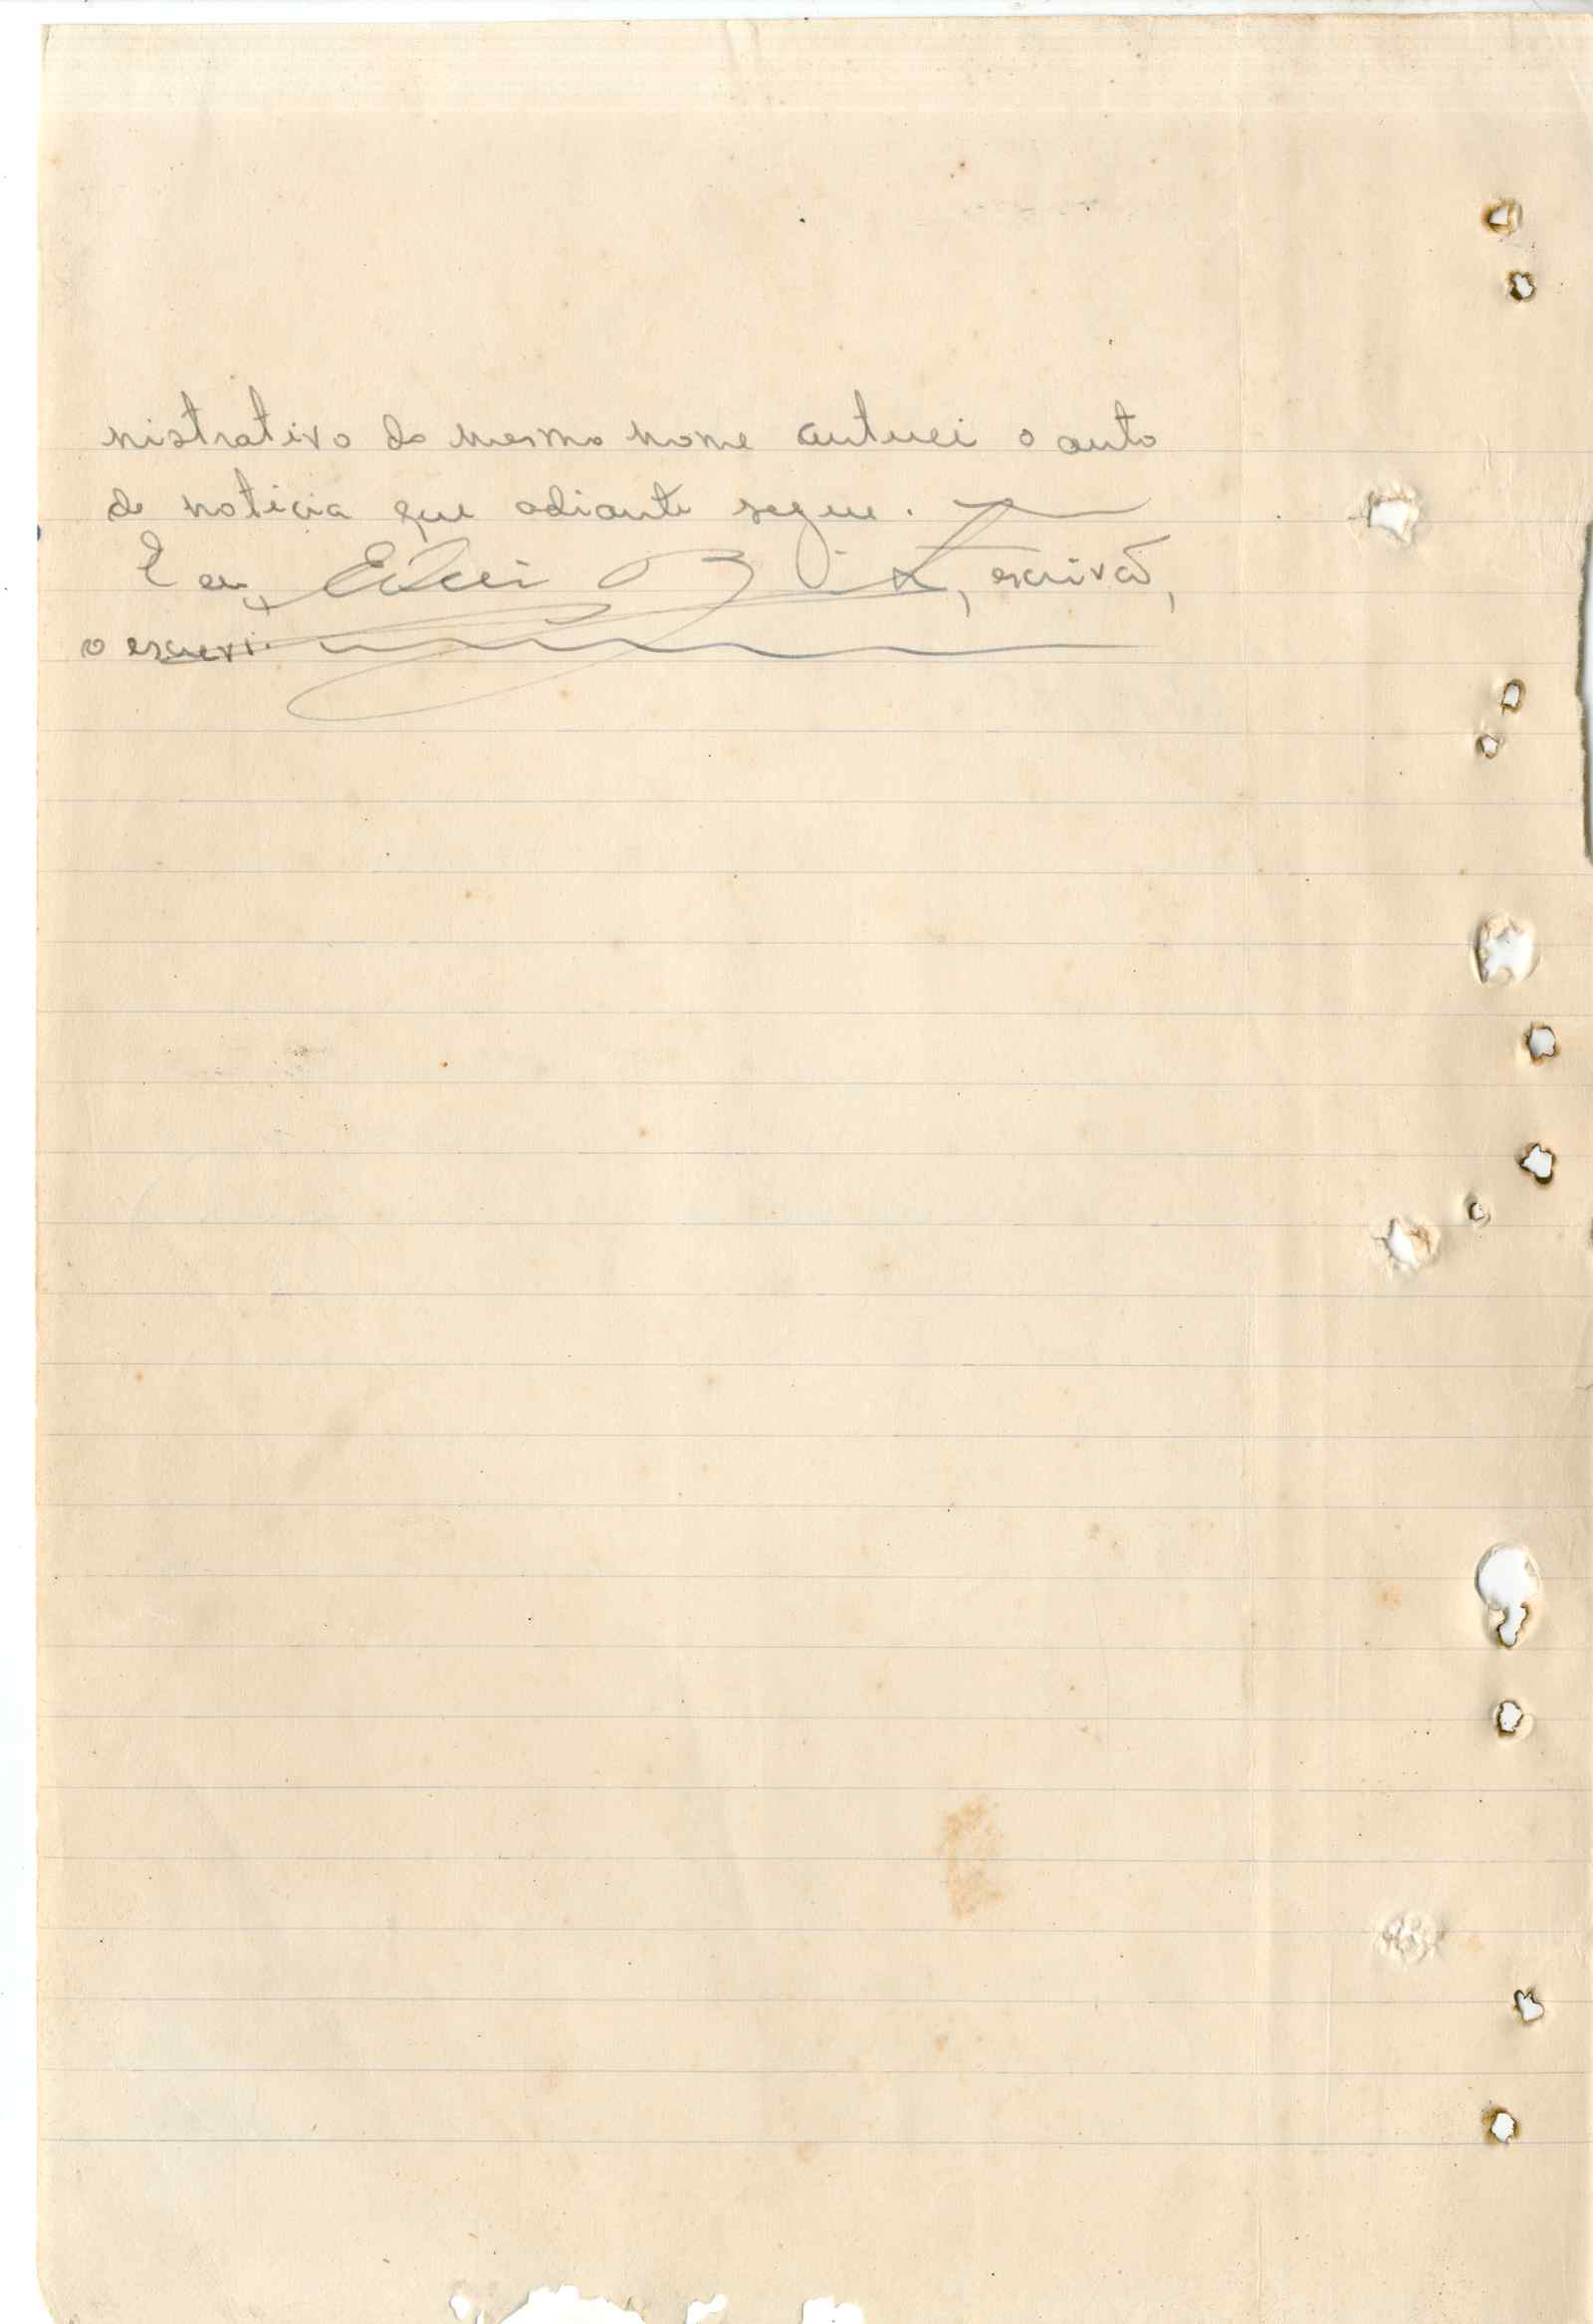 nistrativo do mesmo nome autuei o auto
de noticia que adiante segue.
E eu, , escrivão,
o escrevi.